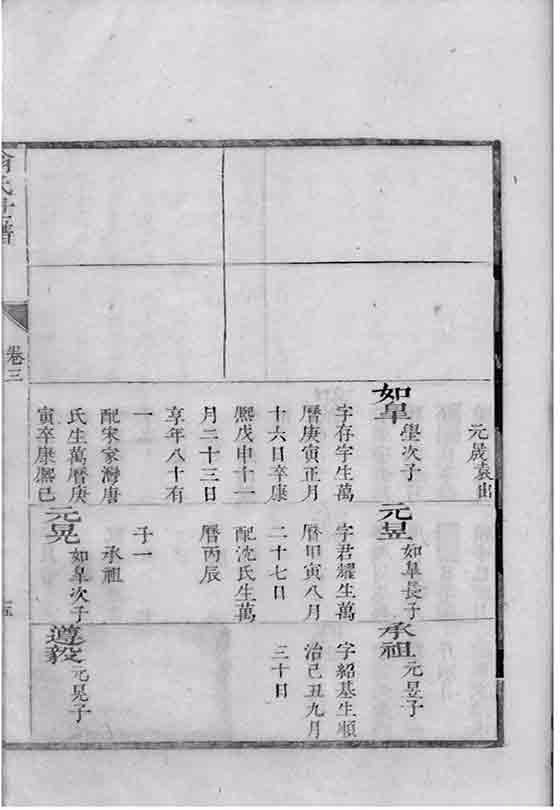 元晟袁出
如皐
學次子
字存孚生萬
曆庚寅正月
十六日卒康
熙戊申十一
月二十三日
享年八十有
一
配宋家灣唐
氏生萬曆庚
寅卒康熙己
元昱
如皐長子
字君耀生萬
曆甲寅八月
二十七日
配沈氏生萬
曆丙辰
子一
承祖
元晃
如皐次子
承祖
元昱子
字紹基生順
治己丑九月
三十日
遵毅
元晃子
卷三